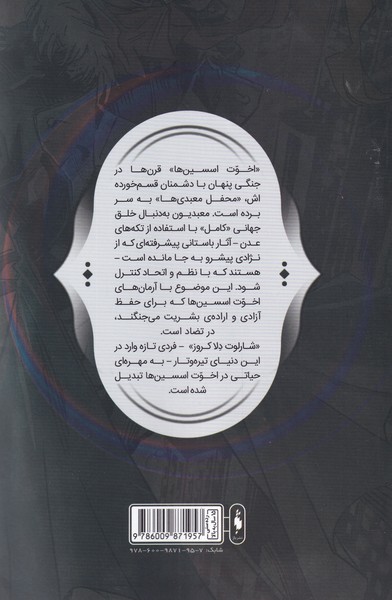 «اخوّت اسسین‌ها» قرن‌ها در
جنگی پنهان با دشمنان قسم‌خورده
اش، «محفل معبدی‌ها» به سر
برده است. معبدیون به‌دنبال خلق
جهانی «کامل» با استفاده از تکه‌های
عدن - آثار باستانی پیشرفته‌ای که از
نژادی پیشرو به جا مانده است -
هستند که با نظم و اتحاد کنترل
شود. این موضوع با آرمان‌های
اخوّت اسسین‌ها که برای حفظ
آزادی و اراده‌ی بشریت می‌جنگند،
در تضاد است.
«شارلوت دِلا کروز» - فردی تازه وارد در
این دنیای تیره‌وتار - به مهره‌ای
حیاتی در اخوّت اسسین‌ها تبدیل
شده است.
9 786009 871957
شابک: ۷-۹۵-۹۸۷۱-۶۰۰-۹۷۸